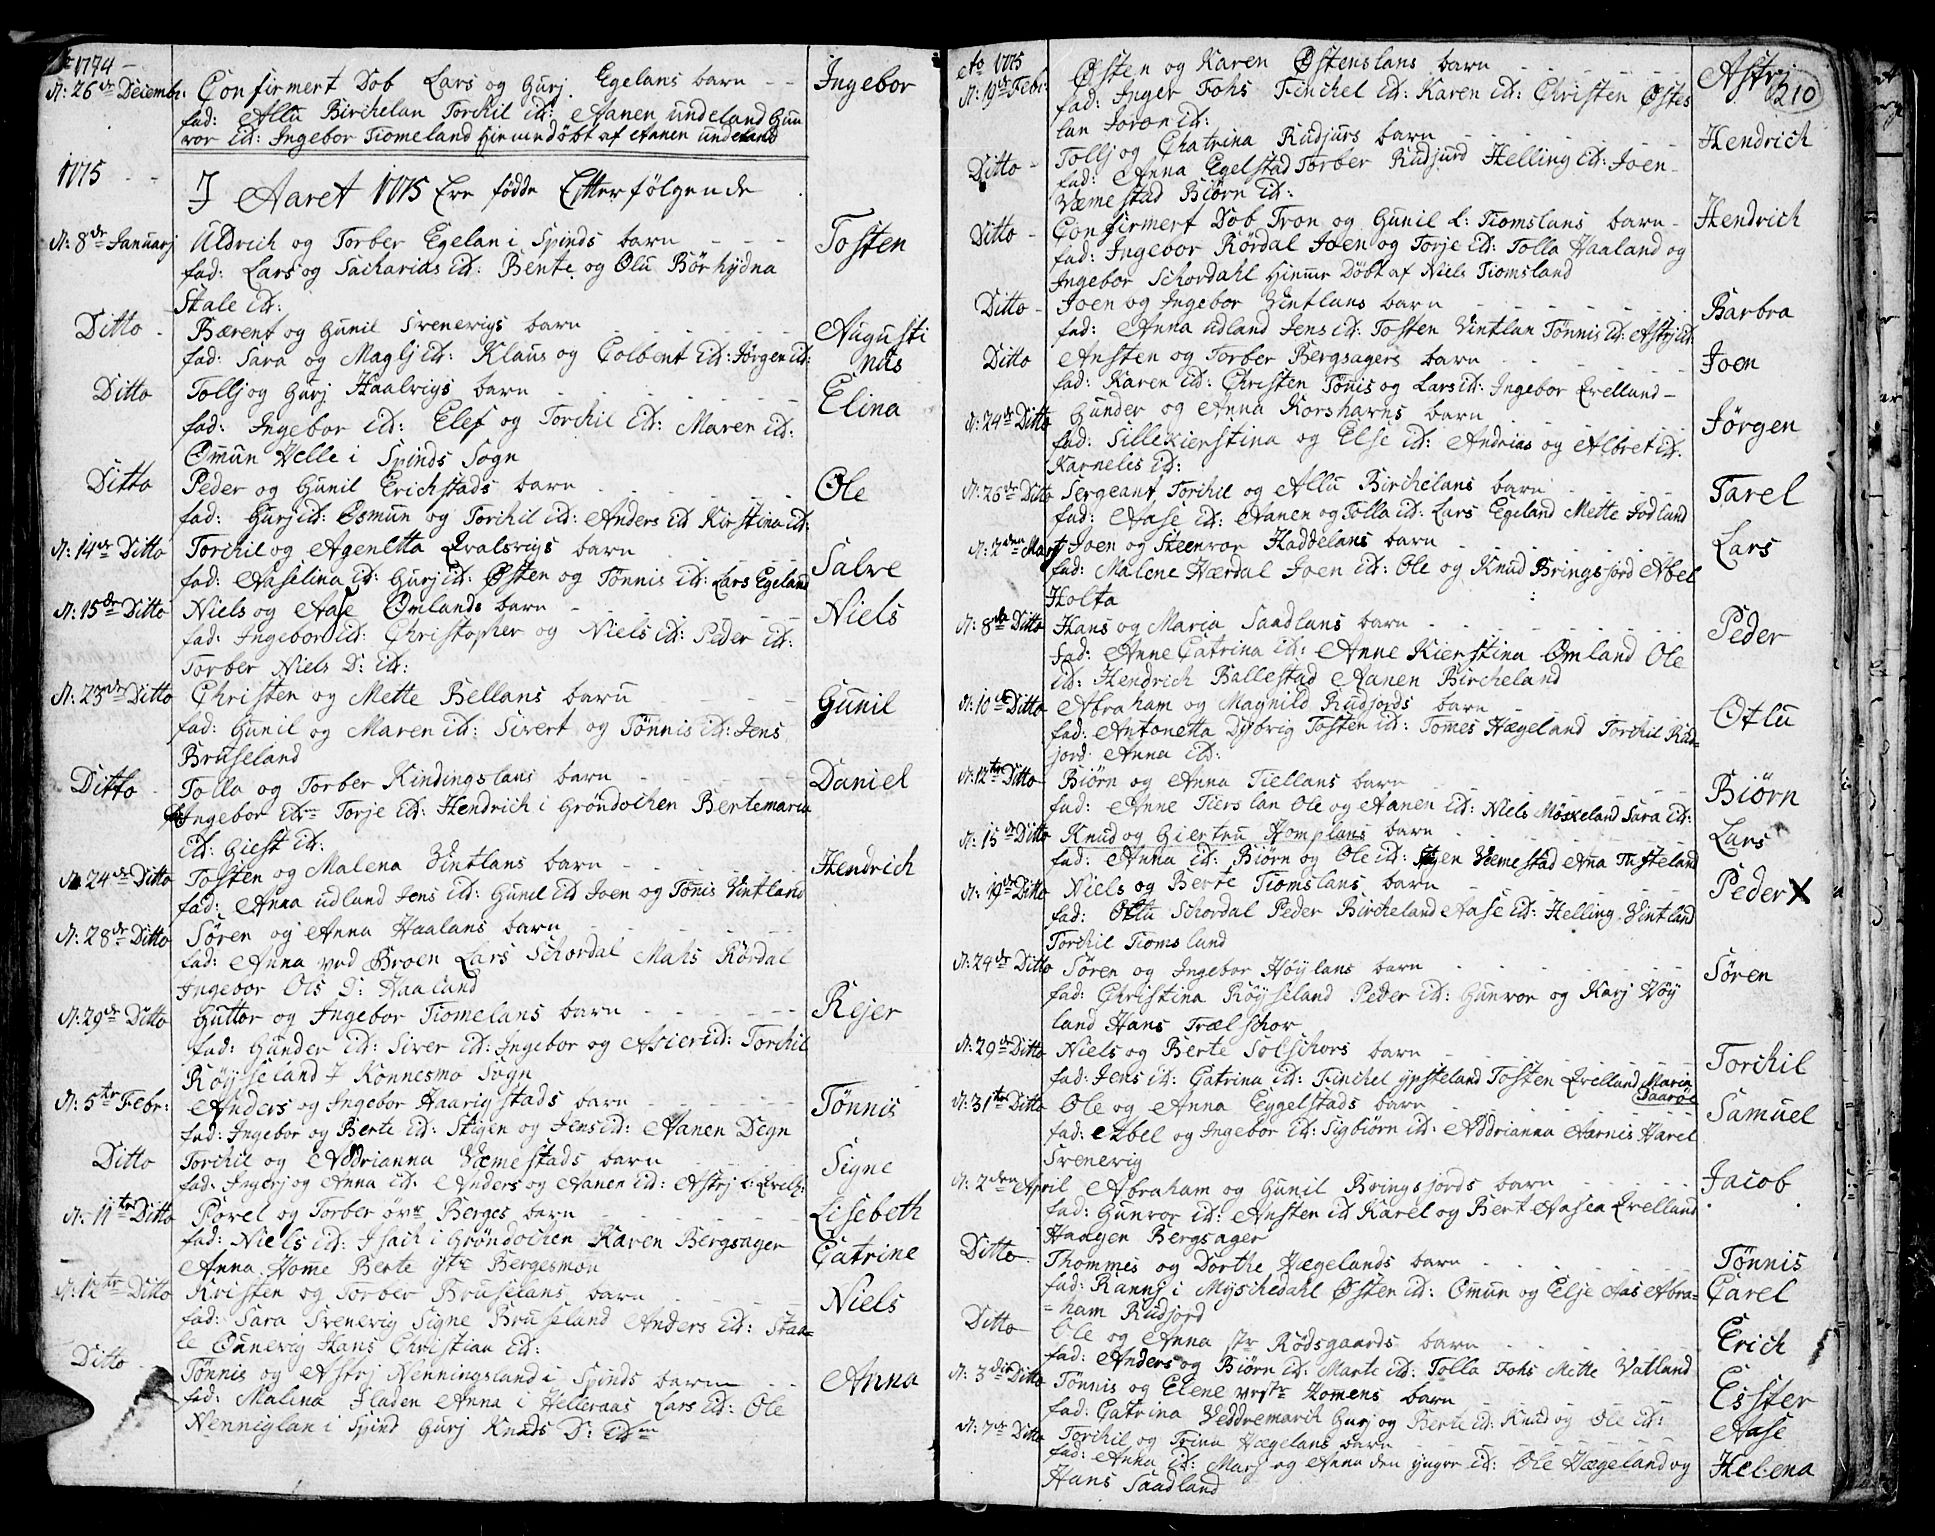 Ao 1774
N: 26de Decembr: Confirmert Dob Lars og Gurj Egelans barn - - Ingebor
fad: Allu Birchelan Torchil id: Aanen undeland Gun
vor id: Ingebor Tiomeland hiemmdöbt af Aanen undeland
1775 - - J Aaret 1775 Ere fødde Efterfølgende
N: 8de Januarj Uldrich og Torber Egelan i Spinds barn - - - Tosten
fad: Lars og Sacharias id: Bente og Olu Börhydna
Stale id:
Ditto - Bærent og Gunil Svenevigs barn - - - Augusti
fad: Sara og Maglj id: Klaus og Colbent id: Jørgen id: nus
Ditto Tollj og Gurj Haalvigs barn - - - Elina
fad: Ingebor id: Elef og Torchil id: Maren id:
Omun Velle i Spinds Sogn
Ditto Peder og Gunil Erichstads barn - - - Ole
fad: Gurj id: Osmun og Torchil id: Anders id Kirstina id:
N: 14de Ditto Torchil og Agenetta Qvalsvigs barn - - - Salve
fad: Aaselina id: Gurj id: Østen og Tönnis id: Lars Egeland
N: 15de Ditto Niels og Aase Omlands barn - - - Niels
fad: Ingebor id: Christopher og Niels id: Peder id:
Torber Niels D: id:
N: 23de Ditto Christen og Mette Bellans barn - - - Gunil
fad: Gunil og Maren id: Sivert og Tönnis id: Jens
Bruseland
Ditto - Tolla og Torber Kindingslans barn - - - Daniel
Ingebor idm Torje id: Hendrich i Gröndochen Bertemaria
id: Giest id:
N. 24de Ditto Tosten og Malena Vintlans barn - Hendrich
fad: Anna udland Jens id: Gunil id Joen og Tönis Vintland
N: 28de Ditto Søren og Anna Haalans barn - - -
fad: Anna ved Broen Lars Schordal Mahs Rördal
Ingebor Ols D: Haalund
N: 29de Ditto Guttor og Ingebor Tiomelans barn - - - Rejer
fad: Gunder id: Siver id: Ingebor og Asier id: Torchil
Röysseland J Konnesmo Sogn
N: 5te Febr: Anders og Ingebor Haarigstads barn - - - Tönnis
fad: Ingebor og Berte id: Stigen og Jens id: Aanen Degn
Ditto Torchil og Addrianna Væmestads barn - - - Signe
fad: Ingerj og Anna id: Anders og Aanen id: Astrj
N: 11te Ditto Porel og Torber övre Berges barn - - - Lisebeth
fad: Niels id: Isach i Gröndochen Karen Bergsager Catrine
Anna Home Berte ytre Bergesmon
N: 12te Ditto Kristen og Torber Bruselans barn - - - Niels
fad: Sara Svenevig Signe Bruseland Anders id: Staa-
le Ounevig Hans Christian id:
Ditto - Tönnis og Astrj Nenningsland i Spinds barn - - Anna
fad: Malina Fladen Anna i Helleraas Lars id: Ole
Nenniglan i Spind Gurj Knuds D: idm
Ao 1775 210
N: 19de Febr: Østen og Karen Østenslans barn - - - Astrj
fad: Inger Fohs Finchel id: Karen id: Christen Østes
lan Joron id:
Ditto - Tollj og Chatrina Rudjurs barn - - - Hendrich
fad: Anna Egelstad Torber Rudjurd Helling id: Joen
Væmestad Biørn id:
Ditto - Confirmert Dob Tron og Gunil L: Tiomslans barn - Hendrich
fad: Ingebor Rördal Joen og Torje id: Tolla Haaland og
Ingebor Schordahl Hiemme Döbt af Niels Tiomsland
Ditto - Joen og Ingebor Vintlans barn - - - Barbra
fad: Anna udland Jens id: Tosten Vintlan Tönnis id: Astrj id
Ditto Ansten og Torber Bergsagers barn - - - Joen
fad: Karen id: Christen Tönis og Lars id: Ingebor Qvelland -
N: 24de Ditto Gunder og Anna Korshavns barn - - - Jørgen
fad: Sillekierstina og Else id: Andrias og Albret id.
Karneles id:
N: 26de Ditto Sergeant Torchil og Allu Birchelans barn - - - Tarel
fad: Aase id: Aanen og Tolla id: Lars Egeland Mette Jodland
N: 2den Marj Joen og Steenvor Haddelans barn - - - Lars
fad: Malene Hærdal Joen id: Ole og Knud Bringsjord Abel
Holta
N: 8de Ditto Hans og Maria Saadlans barn - - - Peder
fad: Anne Catrina id: Anne Kierstina Omland Ole
id: Hendrich Ballestad Aanen Bircheland
N: 10de Ditto Abraham og Magnild Rudjords barn - - - Otlu
fad: Antonetta Dybvig Tosten id: Tomes Hægeland Torchil Rud-
jord. Anna id:
N: 12te Ditto Biörn og Anna Tiellans barn - - - Biørn
fad: Anne Tierslan Ole og Aanen id: Niels Möskeland Sara id:
N: 15de Ditto Knud og Giertru Homplans barn - - - Lars
fad: Anna id: Biørn og Ole id: Stigen Væmestad Ana Thysteland
N: 19de Ditto Niels og Berte Tiomslans barn - - - Peder X
fad: Otlu Schordal Peder Bircheland Aase id: Helling Vintland
Torchil Tiomsland
N: 24de Ditto Sören og Ingebor Höylans barn - - - Søren
fad: Christina Röysseland Peder id: Gunvor og Karj Höy
land Hans Trælschor
N: 29de Ditto Niels og Berte Solschors barn - - - Torchil
fad: Jens id: Catrina id: Finchel ypsteland Tosten Qvelland Marin
Saaröe
N: 31te Ditto Ole og Anna Eggelstads barn - - - Samuel
fad: Abel og Ingebor id: Sigbiørn id: Addrianna Aarnis Harel
Svenevig
N: 2den April Abraham og Gunil Bringsjords barn - - - Jacob
fad: Gunvor id: Ansten id Karel og Bert Aasea Qvelland
Haagen Bergsager
Ditto Thommes og Dorthe Hægelands barn - - - Tönnis
fad: Ranni i Myschedahl Østen id: Omun og Elje Aas Abra- Carel
=ham Rudjord
Ditto Ole og Anna str Rödsgaards barn - - - Erich
fad: Anders og Biörn id: Marte id: Tolla Fohs Mette Vatland
N: 3die Ditto Tönnis og Elene vestre Homens barn - - - Esster
fad: Catrina Veddremarch Gurj og Berte id: Knud og Ole id:
N: 7de Ditto Torchil og Trina Hægelans barn - - - Aase
fad: Anna id: Marj og Anna den yngre id: Ole Hægeland og Helena
Hans Saadland